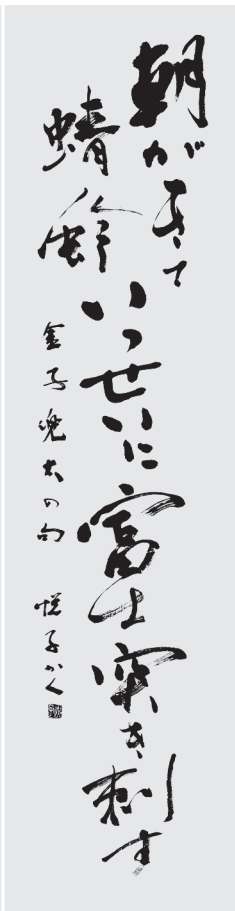 朝がきて
蜻蛉
いっせいに富士突き刺す
金子兜太の句 悦子かく